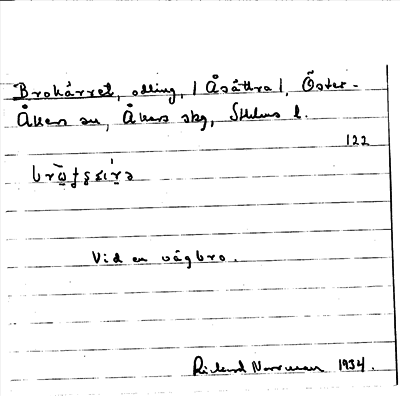 Brokärret, odling, / Åsättra /, Öster-
Åkers sn, Åkers skg, Sthlms l.
122
Vid en vägbro.
Rickard Norrman 1934.